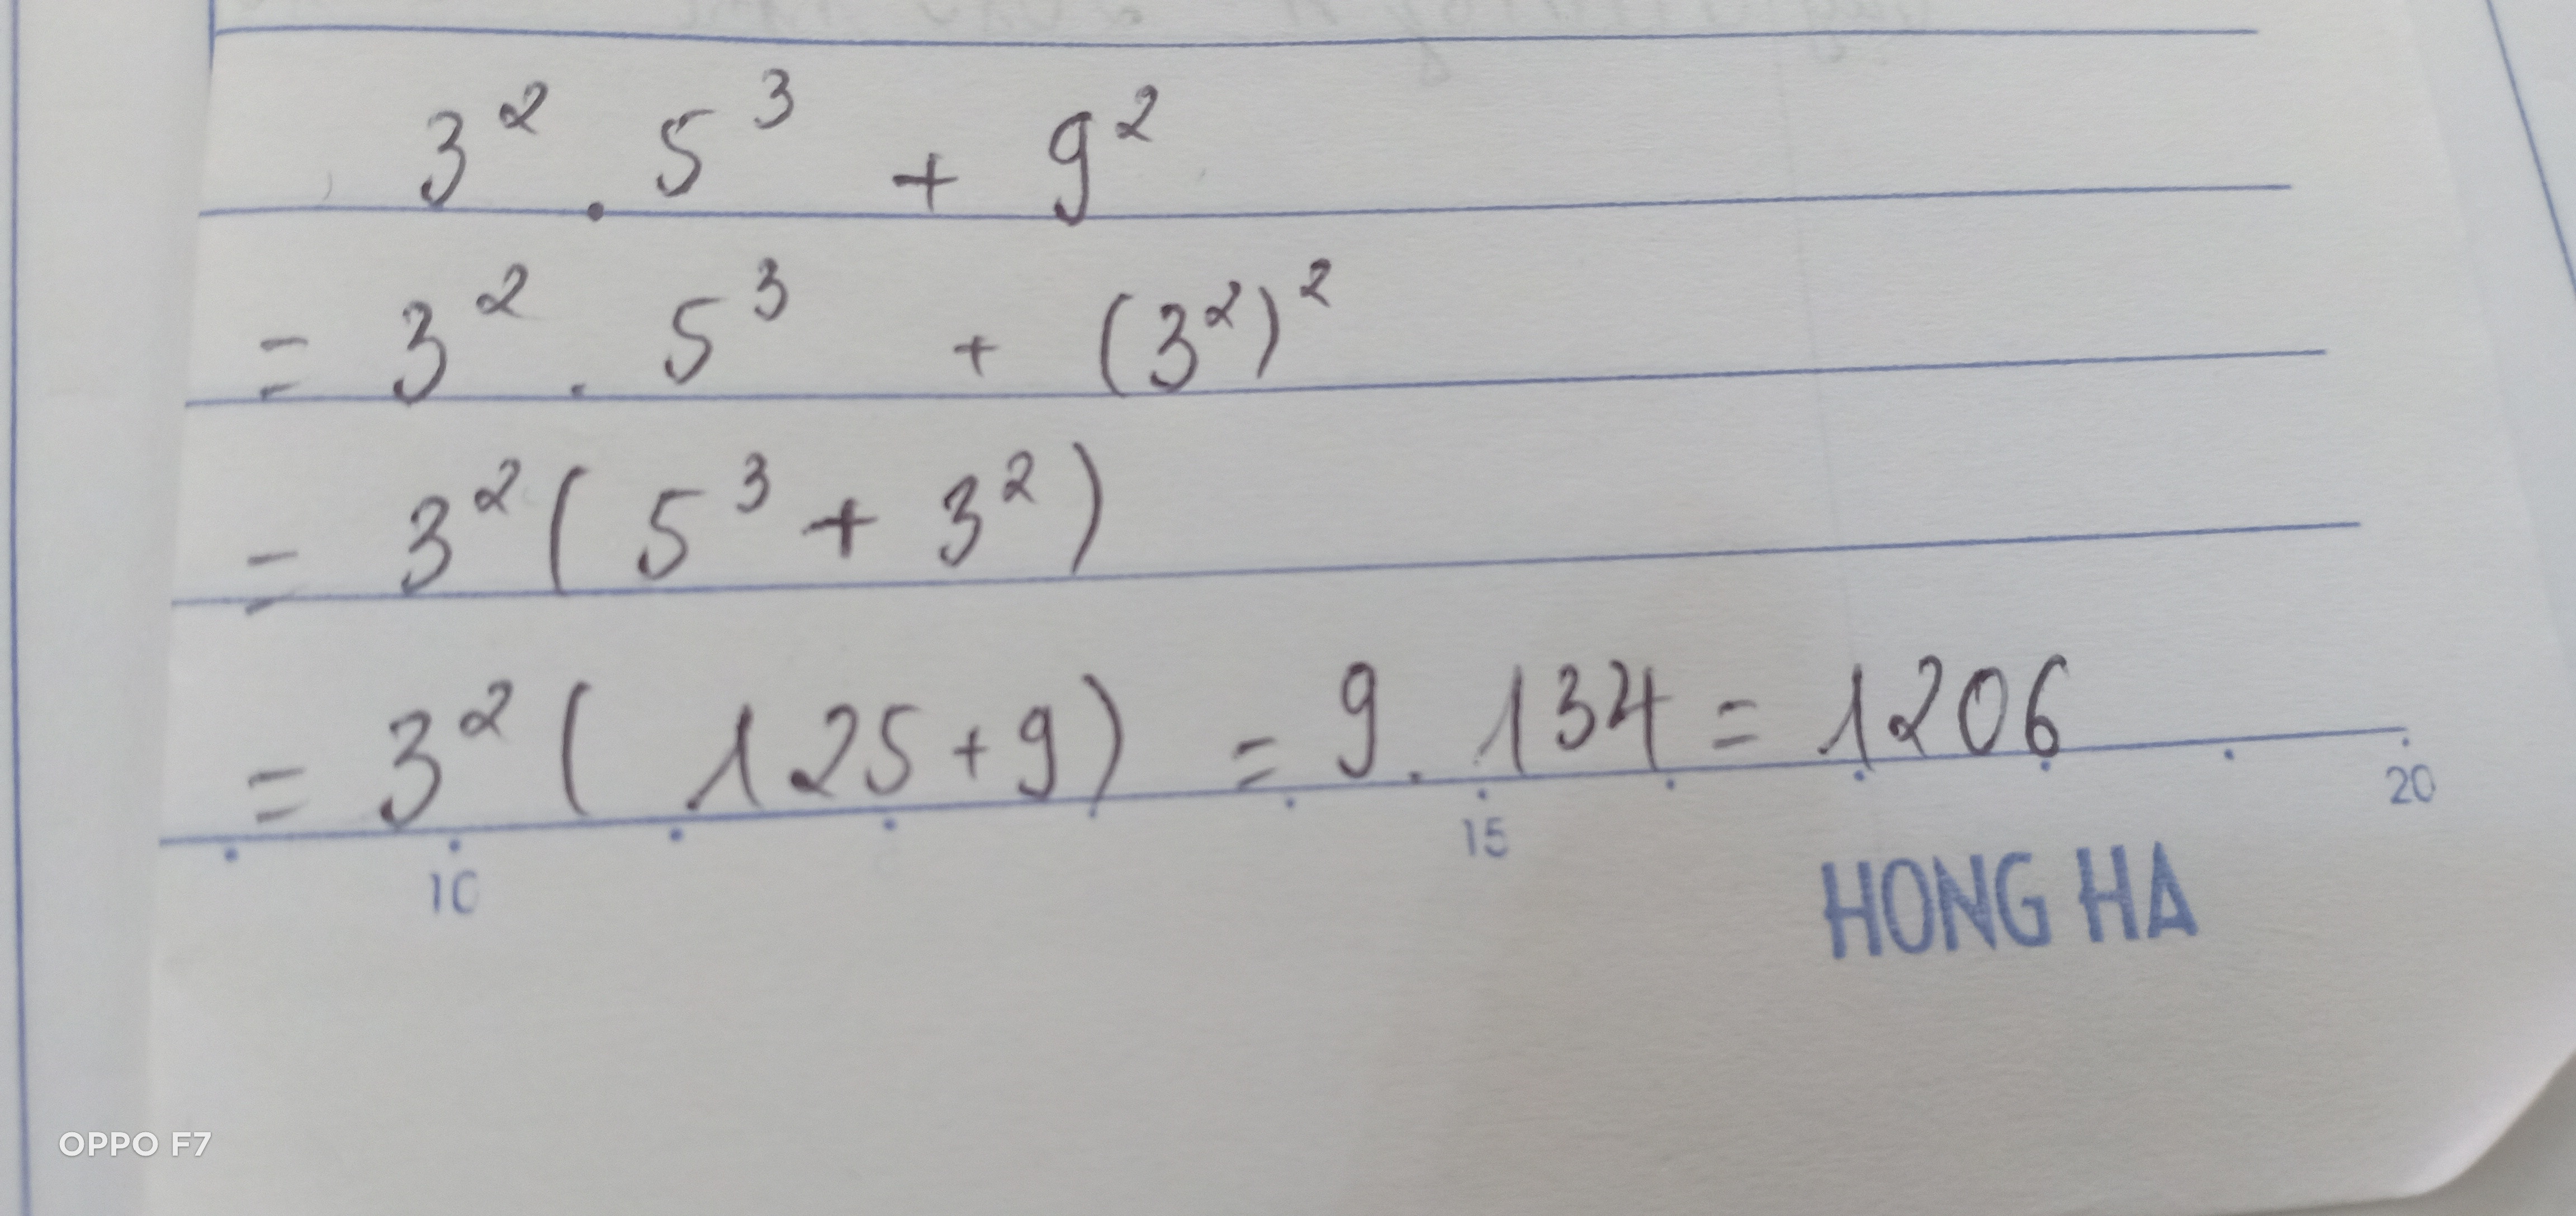 3² . 5³ + 9²
= 3² . 5³ + (3²)²
= 3² ( 5³ + 3² )
= 3² ( 125 + 9 ) = 9 . 134 = 1206
10 15 20
HONG HA
OPPO F7